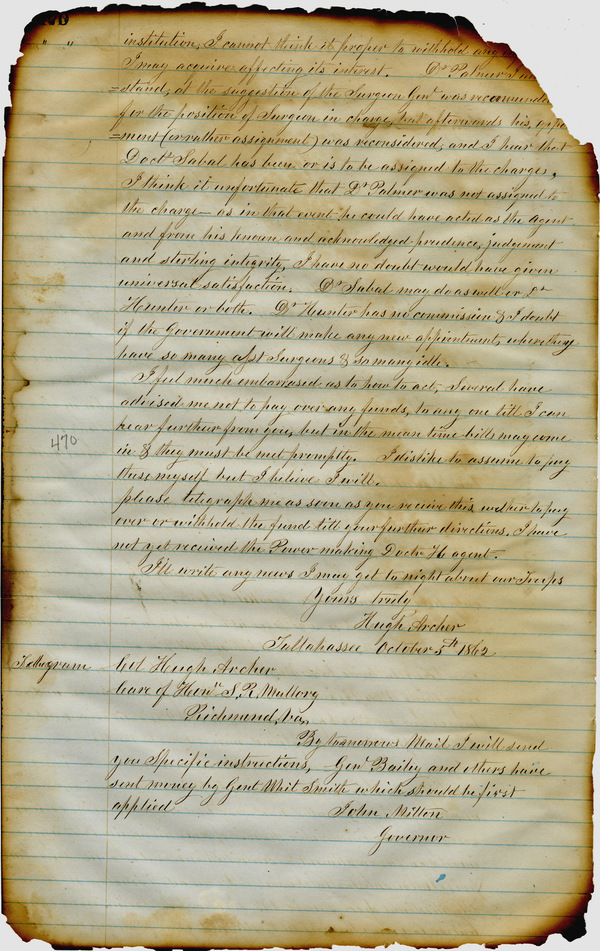 " "
institution, I cannot think it proper to withhold any
I may acquire affecting its interest. Dr Palmer I un
=stand, at the suggestion of the Surgeon Genl was recommende
for the position of Surgeon in charge, but afterwards his, appo
=ment (or rather assignment) was reconsidered, and I hear that
Doctr Sabal has been or is to be assigned to the charges.
I think it unfortunate that Dr Palmer was not assigned to
the charge — as in that event he could have acted as the agent
and from his known and acknowledged prudence, judgement
and sterling integrity, I have no doubt would have given
universal satisfaction. Dr Sabal may do as well or Dr
Hunter or both. Dr Hunter has no commission & I doubt
if the Government will make any new appointments, where they
have so many asst Surgeons & so many idle.
I feel much embarrased as to how to act, Several have
advised me not to pay over any funds, to any one till I can
hear further from you, but in the mean time bills may come
in & they must be met promptly. I dislike to assume to pay
these myself but I believe I will.
please telegraph me as soon as you recieve this, wether to pay
over or withhold the fund till your further directions. I have
not yet received the Power making Doctr H agent.
I'll write any news I may get to night about our Troops
Yours truly
Hugh Archer
470
Tallahassee October 5th 1862
Tellegram Col Hugh Archer
Care of Honr S. R. Mallory
Richmond, Va,
By tomorrows Mail I will send
you Specific instructions, Genl Bailey and others have
sent money by Genl Whit Smith which should be first
applied
John Milton
Governor